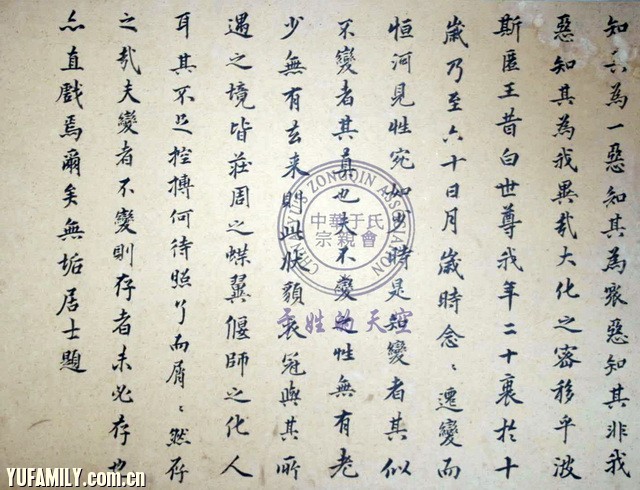 知六為一惡知其為衆惡知其非我
惡知其為我異哉大化之密移乎波
斯匿王昔白世尊我年二十衰於十
歲乃至六十日月歲時念〻遷變而
恒河見性宛如少時是知變者其似
不變者其真也夫不變之性無有老
少無有去来則此狀貌衣冠與其所
遇之境皆莊周之蝶翼偃師之化人
耳其不足控摶何待照了而屑〻然存
之哉夫變者不變則存者未必存也
亦直戲焉爾矣無垢居士題
CHINA YU'S ZONGQIN ASSOCIATION
中華于氏
宗親會
于姓的天空
YUFAMILY.com.cn